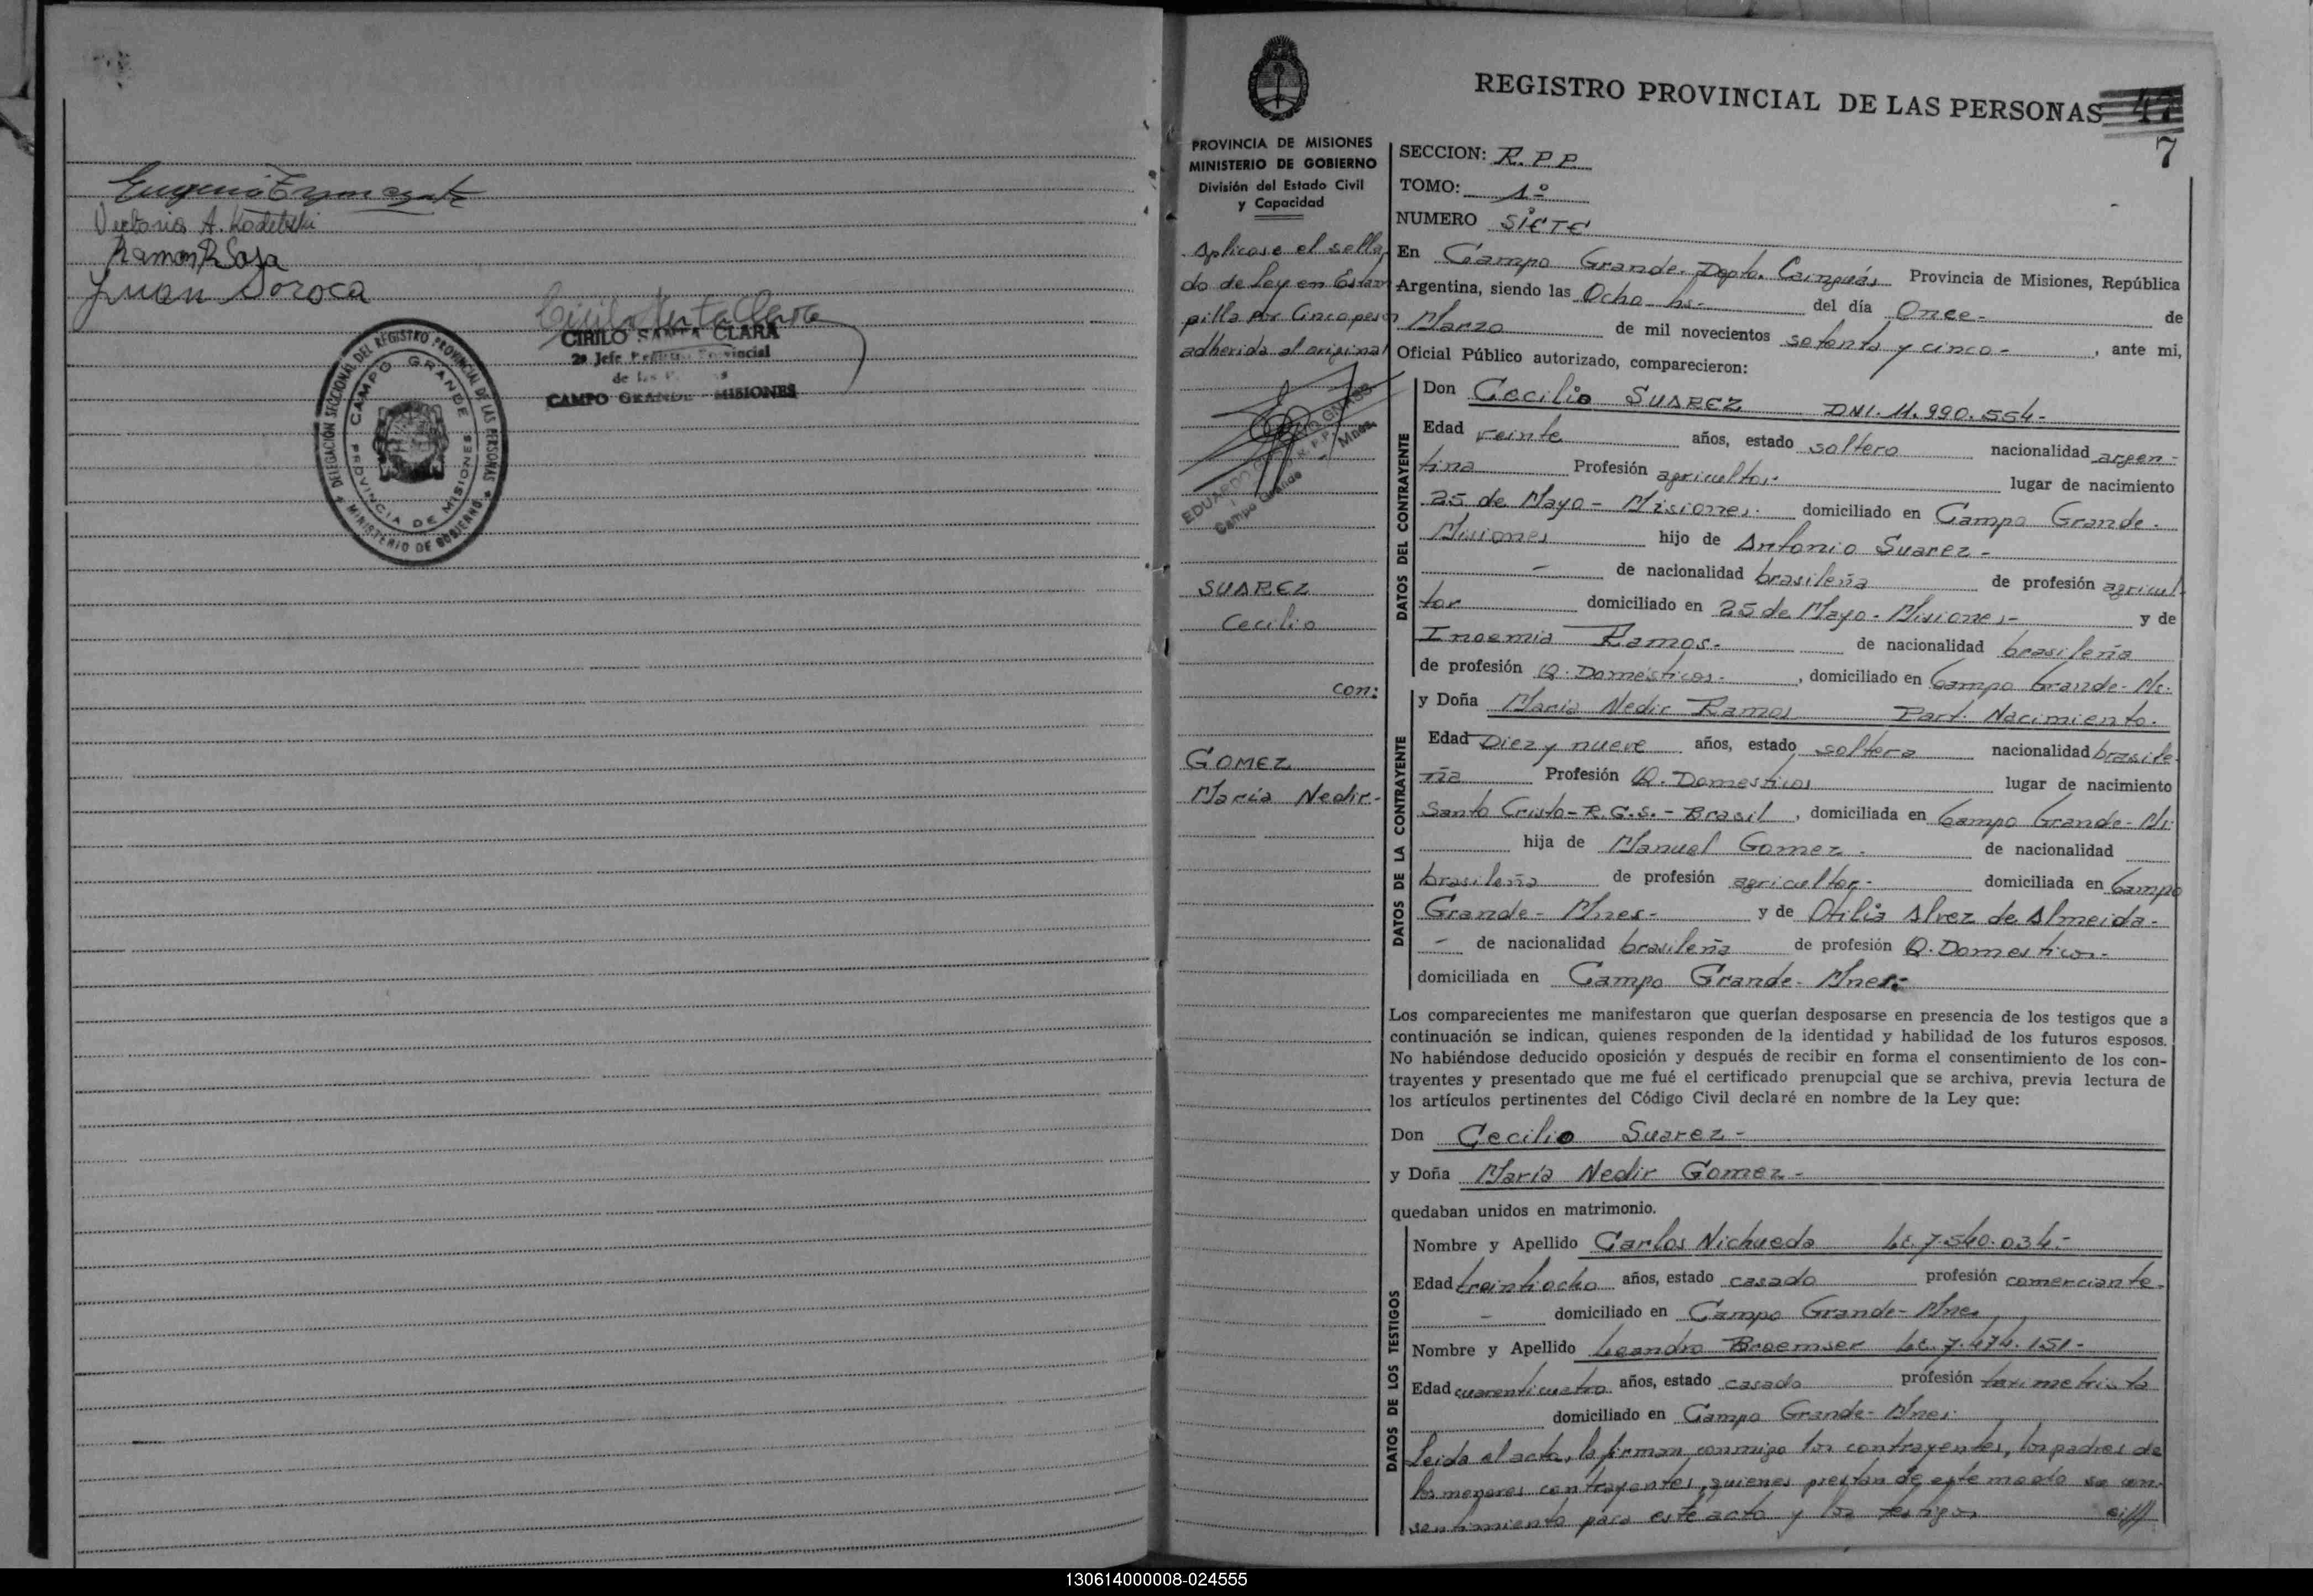 Victorio A. Kodebski
Ramon R Sosa
Juan Soroca
CIRILO SANTA CLARA
2º Jefe Provincial
CAMPO GRANDE MISIONES
DELEGACIÓN SECCIONAL DEL REGISTRO PROVINCIAL DE LAS PERSONAS
MINISTERIO DE GOBIERNO
CAMPO GRANDE
PROVINCIA DE MISIONES
REGISTRO PROVINCIAL DE LAS PERSONAS 47
7
PROVINCIA DE MISIONES
MINISTERIO DE GOBIERNO
División del Estado Civil
y Capacidad
Aplicose el sella
do de Ley en Estam
pilla por Cinco pesos
adherida al original
EDUARDO
Campo Grande Mnes.
SUAREZ
Cecilio
con:
GOMEZ
María Nedir-
SECCION: R.P.P.
TOMO: 1º
NUMERO SIETE
En Campo Grande- Depto. Cainguás Provincia de Misiones, República
Argentina, siendo las Ocho hs- del día Once- de
Marzo de mil novecientos setenta y cinco- , ante mi,
Oficial Público autorizado, comparecieron:
DATOS DEL CONTRAYENTE
Don Cecilio SUAREZ DNI. 11.990.554-
Edad veinte años, estado soltero nacionalidad argen-
tina Profesión agricultor- lugar de nacimiento
25 de Mayo- Misiones- domiciliado en Campo Grande-
Misiones hijo de Antonio Suarez-
- de nacionalidad brasileña de profesión agricul-
tor domiciliado en 25 de Mayo- Misiones- y de
Inoemia Ramos- de nacionalidad brasileña
de profesión Q. Domésticos- , domiciliado en Campo Grande- Ms-
DATOS DE LA CONTRAYENTE
y Doña Maria Nedir Ramos Part. Nacimiento-
Edad Diez y nueve años, estado soltera nacionalidad brasile-
ña Profesión Q. Domesticos lugar de nacimiento
Santo Cristo- R.G.S.- Brasil , domiciliada en Campo Grande- Ms-
hija de Manuel Gomez- de nacionalidad
brasileña de profesión agricultor- domiciliada en Campo
Grande- Mnes- y de Otilia Alvez de Almeida-
- de nacionalidad brasileña de profesión Q. Domesticos-
domiciliada en Campo Grande- Mnes-
Los comparecientes me manifestaron que querían desposarse en presencia de los testigos que a
continuación se indican, quienes responden de la identidad y habilidad de los futuros esposos.
No habiéndose deducido oposición y después de recibir en forma el consentimiento de los con-
trayentes y presentado que me fué el certificado prenupcial que se archiva, previa lectura de
los artículos pertinentes del Código Civil declaré en nombre de la Ley que:
Don Cecilio Suarez-
y Doña María Nedir Gomez-
quedaban unidos en matrimonio.
DATOS DE LOS TESTIGOS
Nombre y Apellido Carlos Nichueda Le. 7.540.034.-
Edad treintiocho años, estado casado profesión comerciante-
- domiciliado en Campo Grande- Mnes
Nombre y Apellido Leandro Broemser Le. 7.474.151-
Edad cuarenticuatro años, estado casado profesión taximetrista
domiciliado en Campo Grande- Mnes-
Leida el acta, la firman conmigo los contrayentes, los padres de
los menores contrayentes, quienes prestan de este modo su con-
sentimiento para este acto y los testigos
130614000008-024555